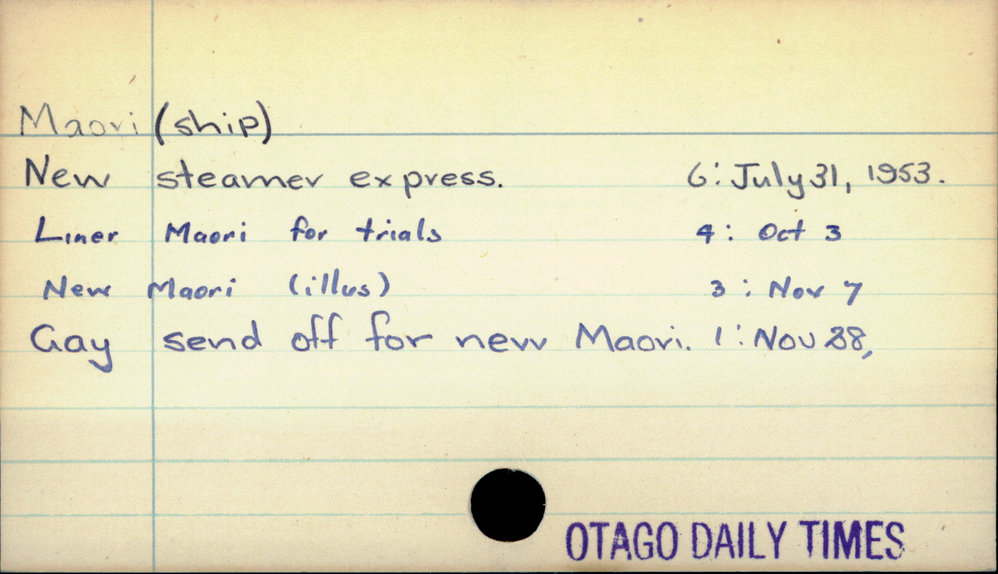 Maori (ship)
New steamer express. 6: July 31, 1953.
Liner Maori for trials 4: Oct 3
New Maori (illus) 3: Nov 7
Gay send off for new Maori. 1: Nov 28,
OTAGO DAILY TIMES